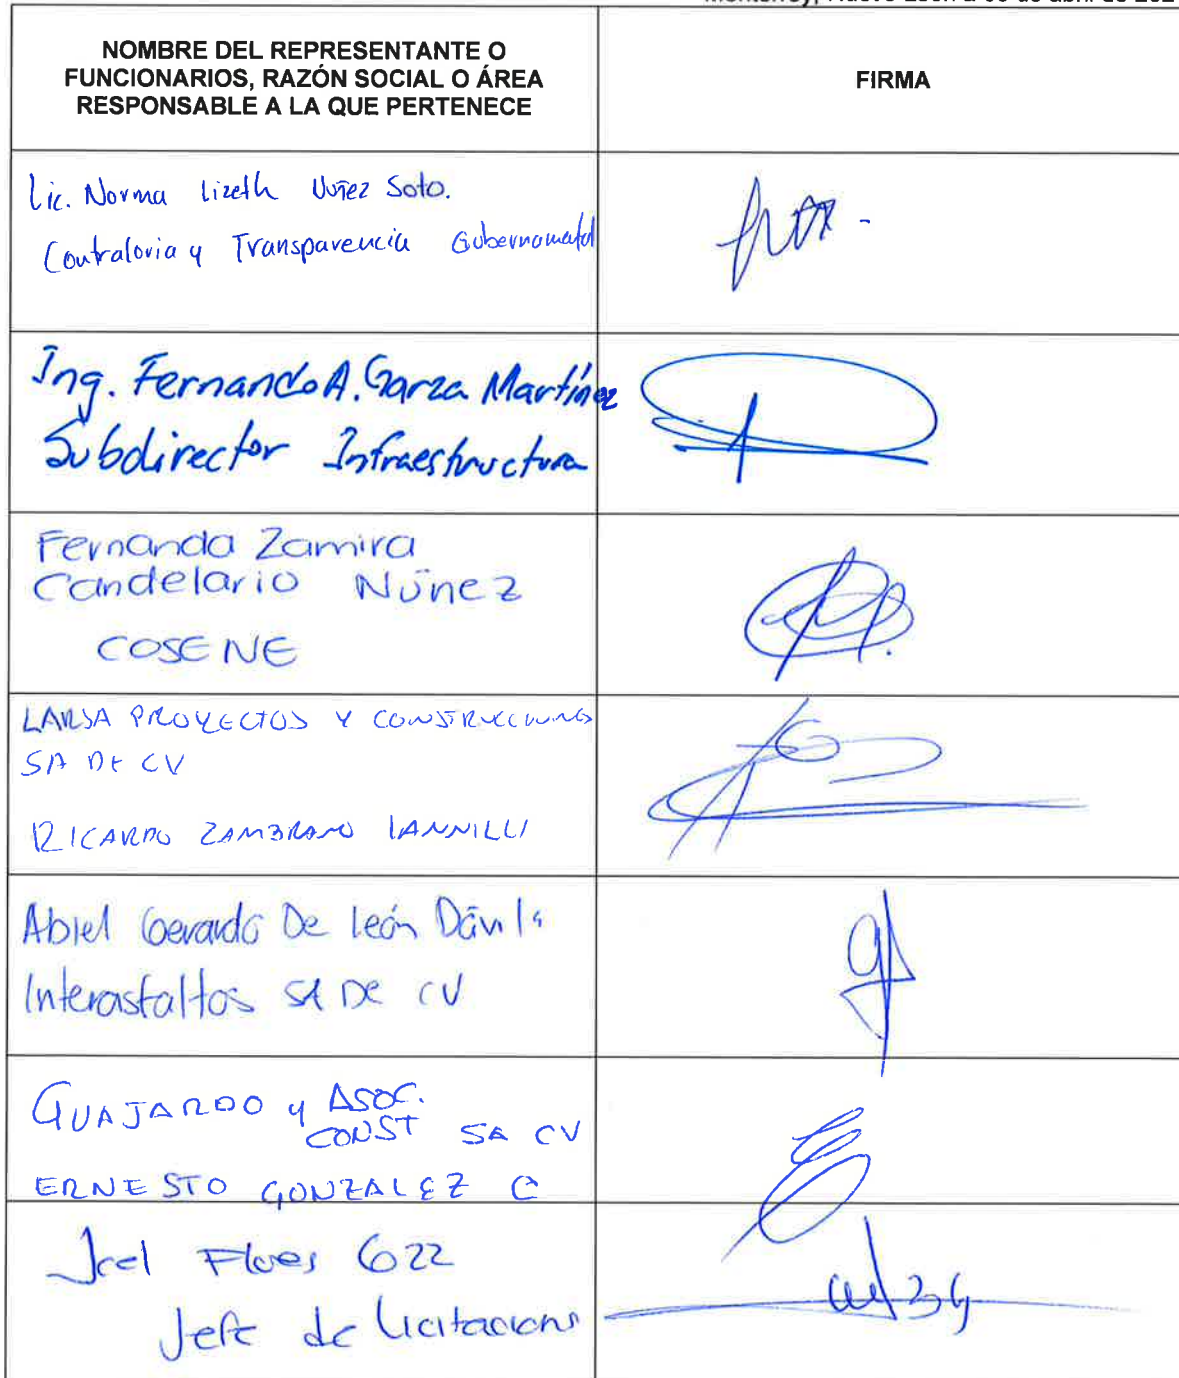 Monterrey, Nuevo León a 06 de abril de 202
NOMBRE DEL REPRESENTANTE O
FUNCIONARIOS, RAZÓN SOCIAL O ÁREA
RESPONSABLE A LA QUE PERTENECE
FIRMA
Lic. Norma Lizeth Nuñez Soto.
Contraloria y Transparencia Gubernamental
Ing. Fernando A. Garza Martínez
Subdirector Infraestructura
Fernanda Zamira
Candelario Núñez
COSENE
LARSA PROYECTOS Y CONSTRUCCIONES
SA DE CV
RICARDO ZAMBRANO IANNILLI
Abiel Gerardo De León Dávila
Interasfaltos SA DE CV
GUAJARDO y ASOC.
CONST SA CV
ERNESTO GONZALEZ C
Joel Flores
Jefe de Licitacions